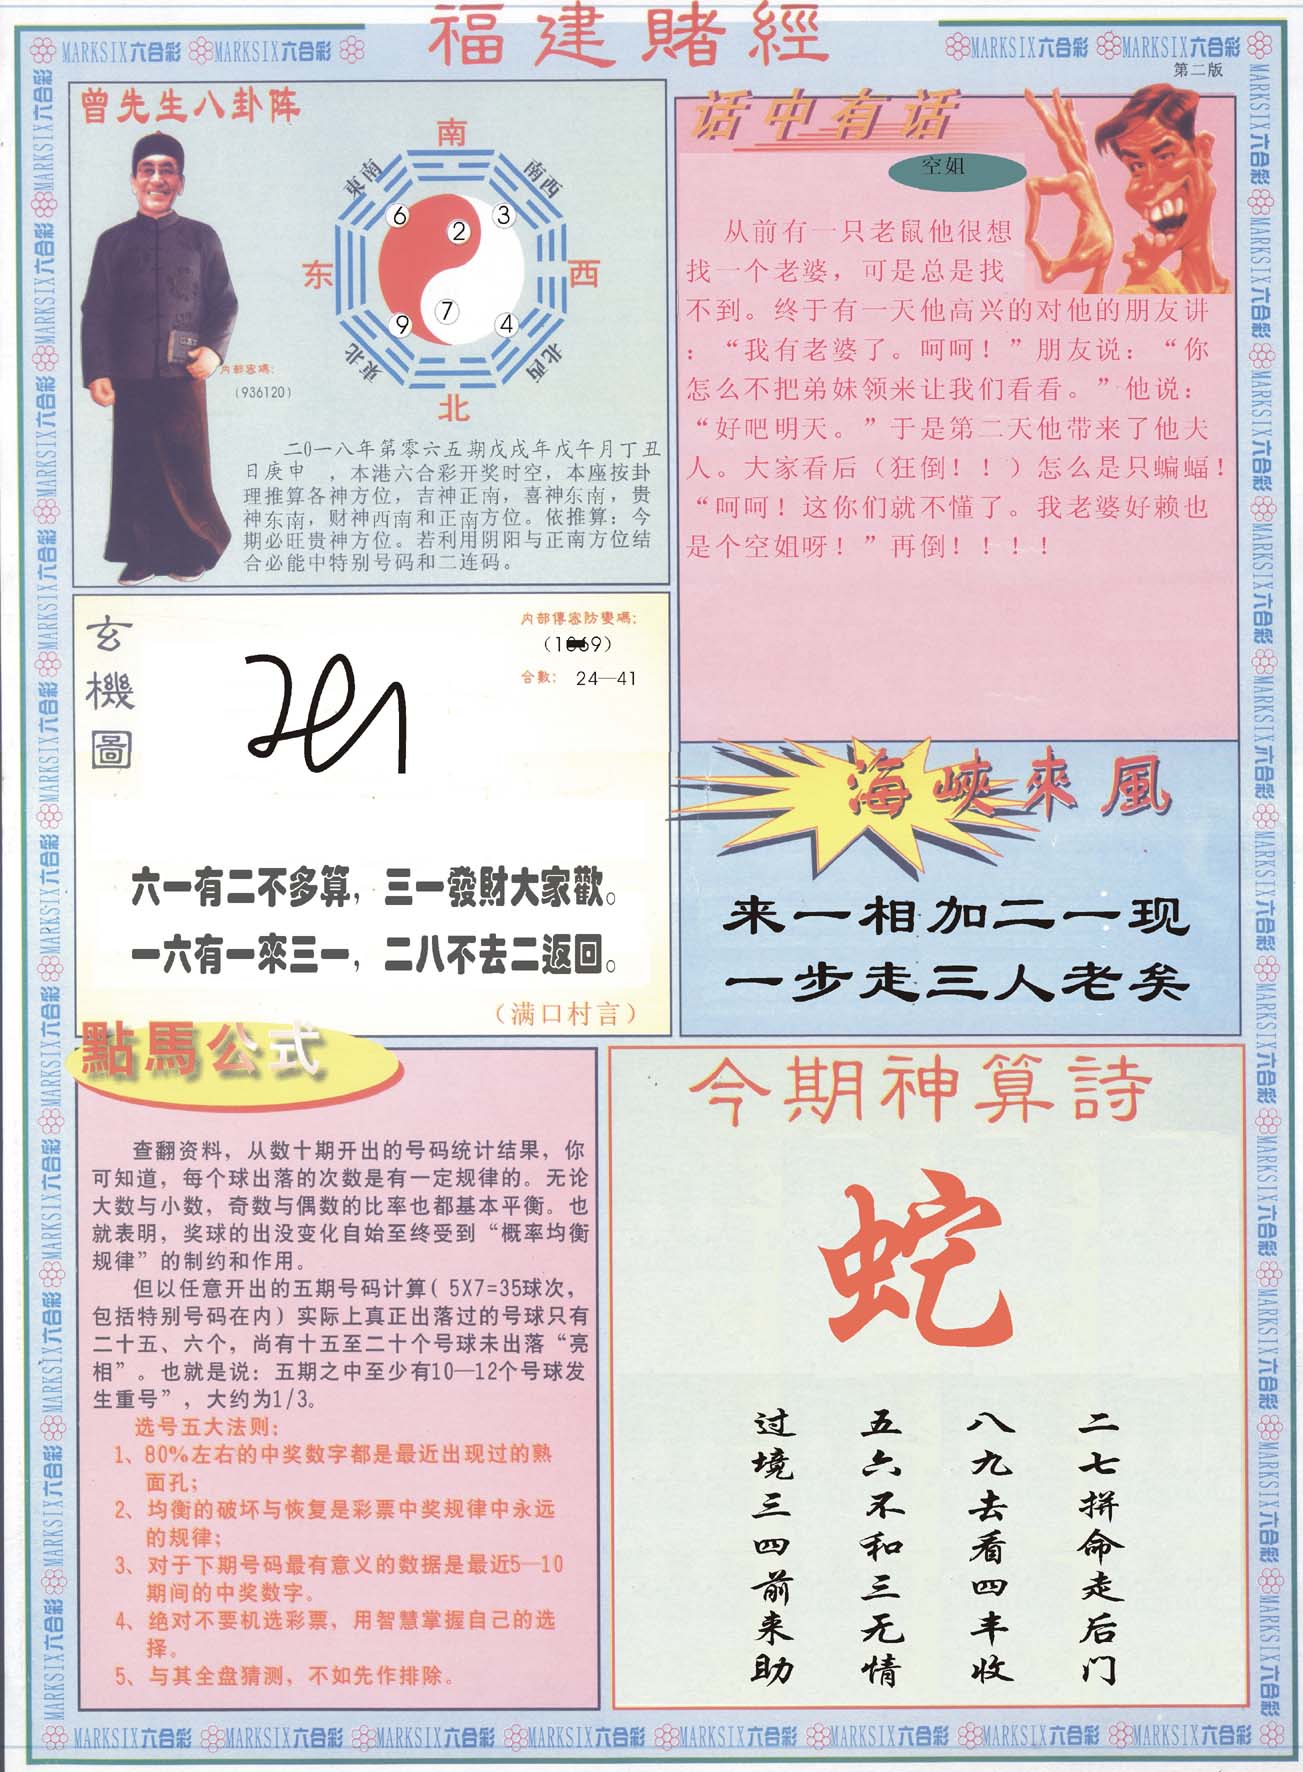 福建賭經
MARKSIX六合彩 MARKSIX六合彩
MARKSIX六合彩 MARKSIX六合彩
第二版
曾先生八卦阵
南
東南
南西
6
2
3
东
西
7
9
4
東北
北西
北
内部密碼:
(936120)
二0一八年第零六五期戊戌年戊午月丁丑
日庚申 ,本港六合彩开奖时空,本座按卦
理推算各神方位,吉神正南,喜神东南,贵
神东南,财神西南和正南方位。依推算:今
期必旺贵神方位。若利用阴阳与正南方位结
合必能中特别号码和二连码。
话中有话
空姐
从前有一只老鼠他很想
找一个老婆,可是总是找
不到。终于有一天他高兴的对他的朋友讲
:“我有老婆了。呵呵!”朋友说:“你
怎么不把弟妹领来让我们看看。”他说:
“好吧明天。”于是第二天他带来了他夫
人。大家看后(狂倒!!)怎么是只蝙蝠!
“呵呵!这你们就不懂了。我老婆好赖也
是个空姐呀!”再倒!!!!
玄機圖
内部傳密防變碼:
合數: 24—41
六一有二不多算,三一發財大家歡。
一六有一來三一,二八不去二返回。
(满口村言)
海峽來風
来一相加二一现
一步走三人老矣
點馬公式
查翻资料,从数十期开出的号码统计结果,你
可知道,每个球出落的次数是有一定规律的。无论
大数与小数,奇数与偶数的比率也都基本平衡。也
就表明,奖球的出没变化自始至终受到“概率均衡
规律”的制约和作用。
但以任意开出的五期号码计算(5X7=35球次,
包括特别号码在内)实际上真正出落过的号球只有
二十五、六个,尚有十五至二十个号球未出落“亮
相”。也就是说:五期之中至少有10—12个号球发
生重号”,大约为1/3。
选号五大法则:
1、80%左右的中奖数字都是最近出现过的熟
面孔;
2、均衡的破坏与恢复是彩票中奖规律中永远
的规律;
3、对于下期号码最有意义的数据是最近5—10
期间的中奖数字。
4、绝对不要机选彩票,用智慧掌握自己的选
择。
5、与其全盘猜测,不如先作排除。
今期神算詩
蛇
二七拼命走后门
八九去看四丰收
五六不和三无情
过境三四前来助
MARKSIX六合彩 MARKSIX六合彩 MARKSIX六合彩 MARKSIX六合彩 MARKSIX六合彩 MARKSIX六合彩 MARKSIX六合彩 MARKSIX六合彩